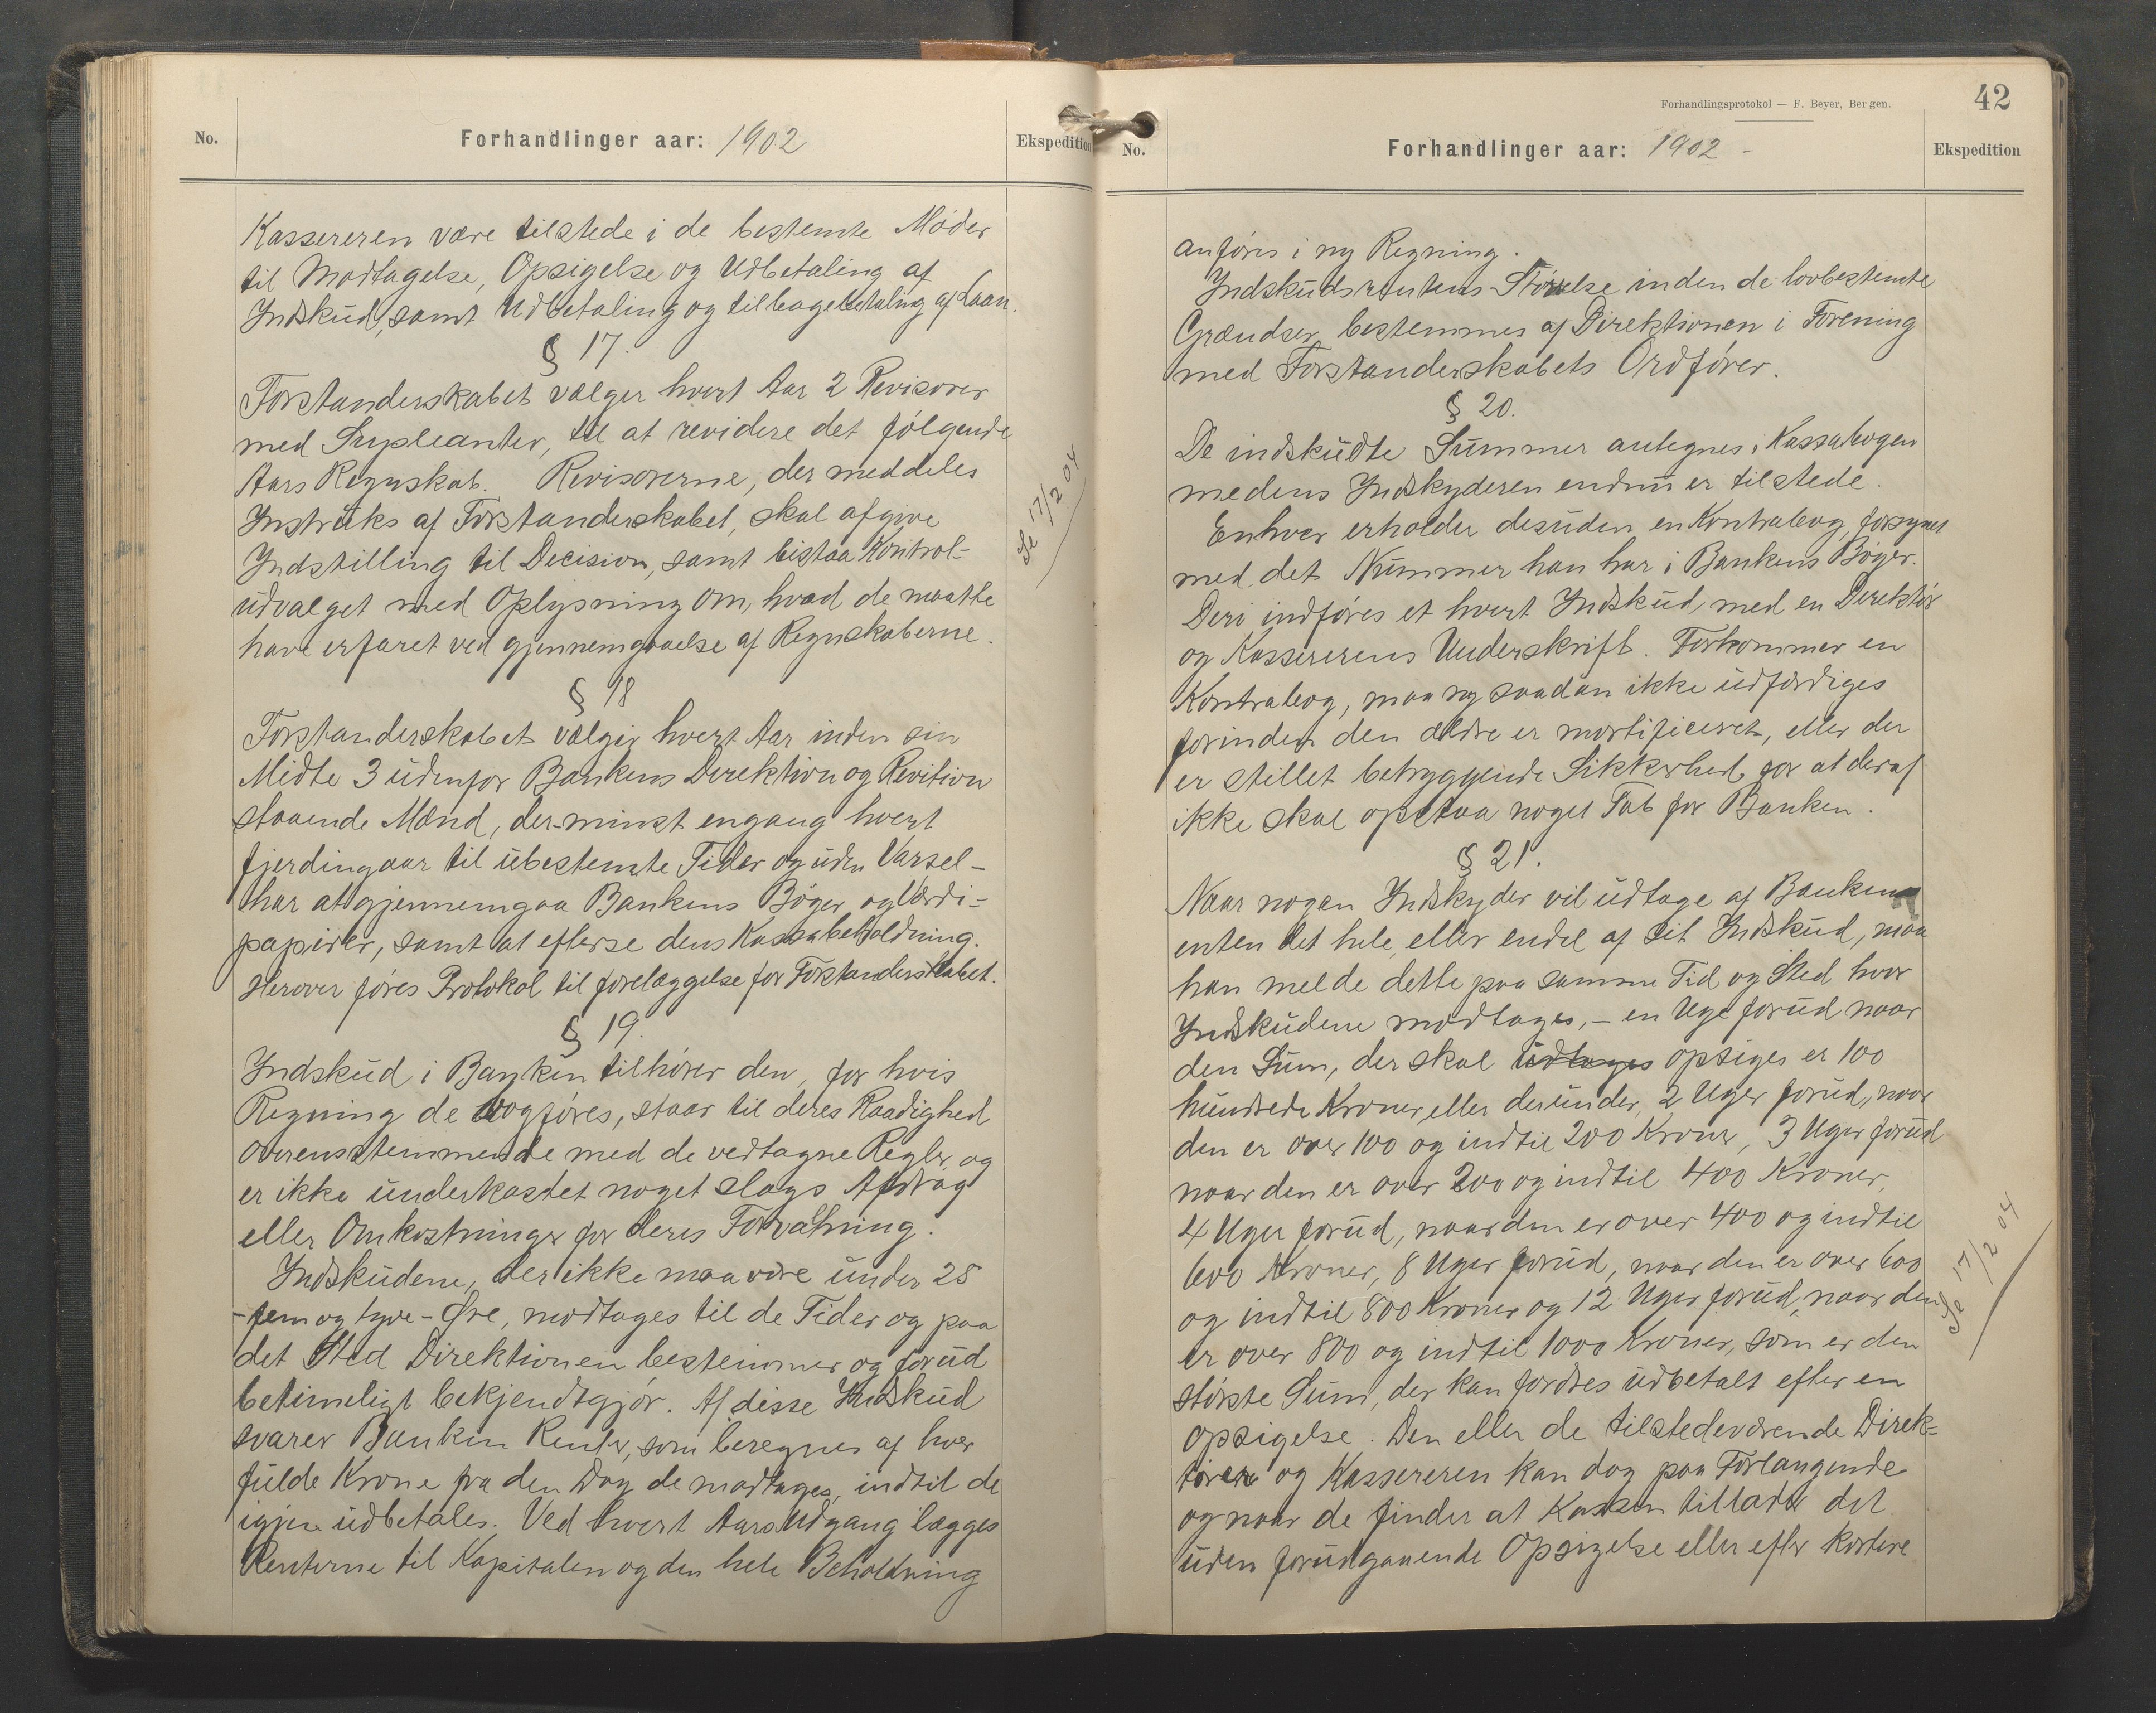 No.
Forhandlinger aar: 1902
Ekspedition
Kassereren være tilstede i de bestemte Møder
til Modtagelse, Opsigelse og Udbetaling af
Indskud, samt Udbetaling og tilbagebetaling af Laan.
§ 17.
Forstanderskabet vælger hvert Aar 2 Revisorer
med Supleanter, til at revidere det følgende
Aars Regnskab. Revisorerne, der meddeles
Instruks af Forstanderskabet, skal afgive
Indstilling til Decision, samt bistaa Kontrol-
udvalget med Oplysning om, hvad de maatte
have erfaret ved gjennemgaaelse af Regnskaberne.
Se 17/2 04
§ 18
Forstanderskabet vælger hvert Aar inden sin
Midte 3 udenfor Bankens Direktion og Revition
staaende Mænd, der minst engang hvert
fjerdingaar til ubestemte Tider og uden Varsel-
har at gjennemgaa Bankens Bøger og Værdi-
papirer, samt at efterse dens Kassabeholdning.
Herover føres Protokol til forelæggelse for Forstanderskabet.
§ 19.
Indskud i Banken tilhører den, for hvis
Regning de bogføres, staar til deres Raadighed
overensstemmende med de vedtagne Regler og
er ikke underkastet noget slags Afdrag
eller Omkostninger for deres Forvaltning.
Indskudene, der ikke maa være under 25
-fem og tyve- Øre, modtages til de Tider og paa
det Sted Direktionen bestemmer og forud
betimeligt bekjendtgjør. Af disse Indskud
svarer Banken Renter, som beregnes af hver
fulde Krone fra den Dag de modtages, indtil de
igjen udbetales. Ved hvert Aars Udgang lægges
Renterne til Kapitalen og den hele Beholdning
Forhandlingsprotokol — F. Beyer, Bergen.
42
No.
Forhandlinger aar: 1902 -
Ekspedition
anføres i ny Regning.
Indskudsrentens Størrelse inden de lovbestemte
Grændser, bestemmes af Direktionen i Forening
med Forstanderskabets Ordfører.
§ 20.
De indskudte Summer antegnes i Kassabogen
medens Indskyderen endnu er tilstede.
Enhver erholder desuden en Kontrabog, forsynet
med det Nummer han har i Bankens Bøger.
Deri indføres et hvert Indskud, med en Direktør
og Kassererens Underskrift. Forkommer en
Kontrabog, maa ny saadan ikke udfærdiges
forinden den ældre er mortificeret, eller der
er stillet betryggende Sikkerhed for at deraf
ikke skal opstaa noget Tab for Banken.
§ 21.
Naar nogen Indskyder vil udtage af Banken
enten det hele, eller endel af sit Indskud, maa
han melde dette paa samme Tid og Sted hvor
Indskudene modtages, - en Uge forud naar
den Sum, der skal udtages opsiges er 100
hundrede Kroner, eller derunder, 2 Uger forud, naar
den er over 100 og indtil 200 Kroner, 3 Uger forud
naar den er over 200 og indtil 400 Kroner,
4 Uger forud, naar den er over 400 og indtil
600 Kroner, 8 Uger forud, naar den er over 600
og indtil 800 Kroner og 12 Uger forud, naar den
er over 800 og indtil 1000 Kroner, som er den
største Sum, der kan fordres udbetalt efter en
Opsigelse. Den eller de tilstedeværende Direk-
tører og Kassereren kan dog paa Forlangende
og naar de finder at Kassen tillader det
uden forudgaaende Opsigelse eller efter kortere
Se 17/2 04